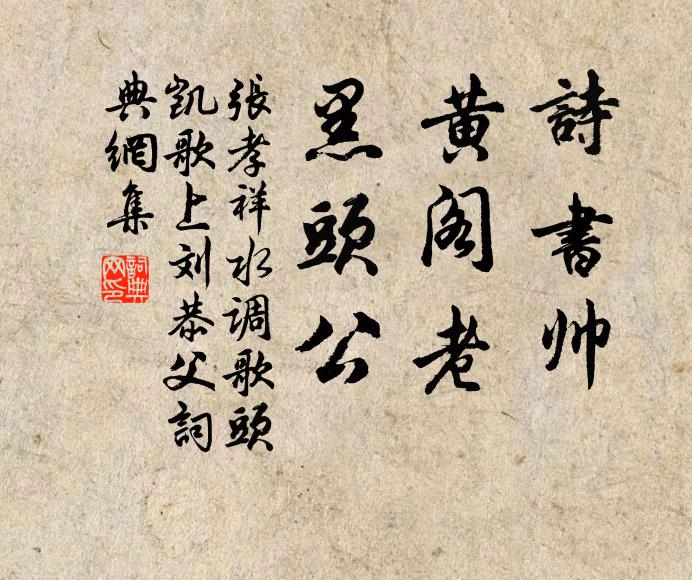 詩書帅
黄阁老
黑頭公
張孝祥水调歌頭
凯歌上刘恭父詞
典網集
詞典网印